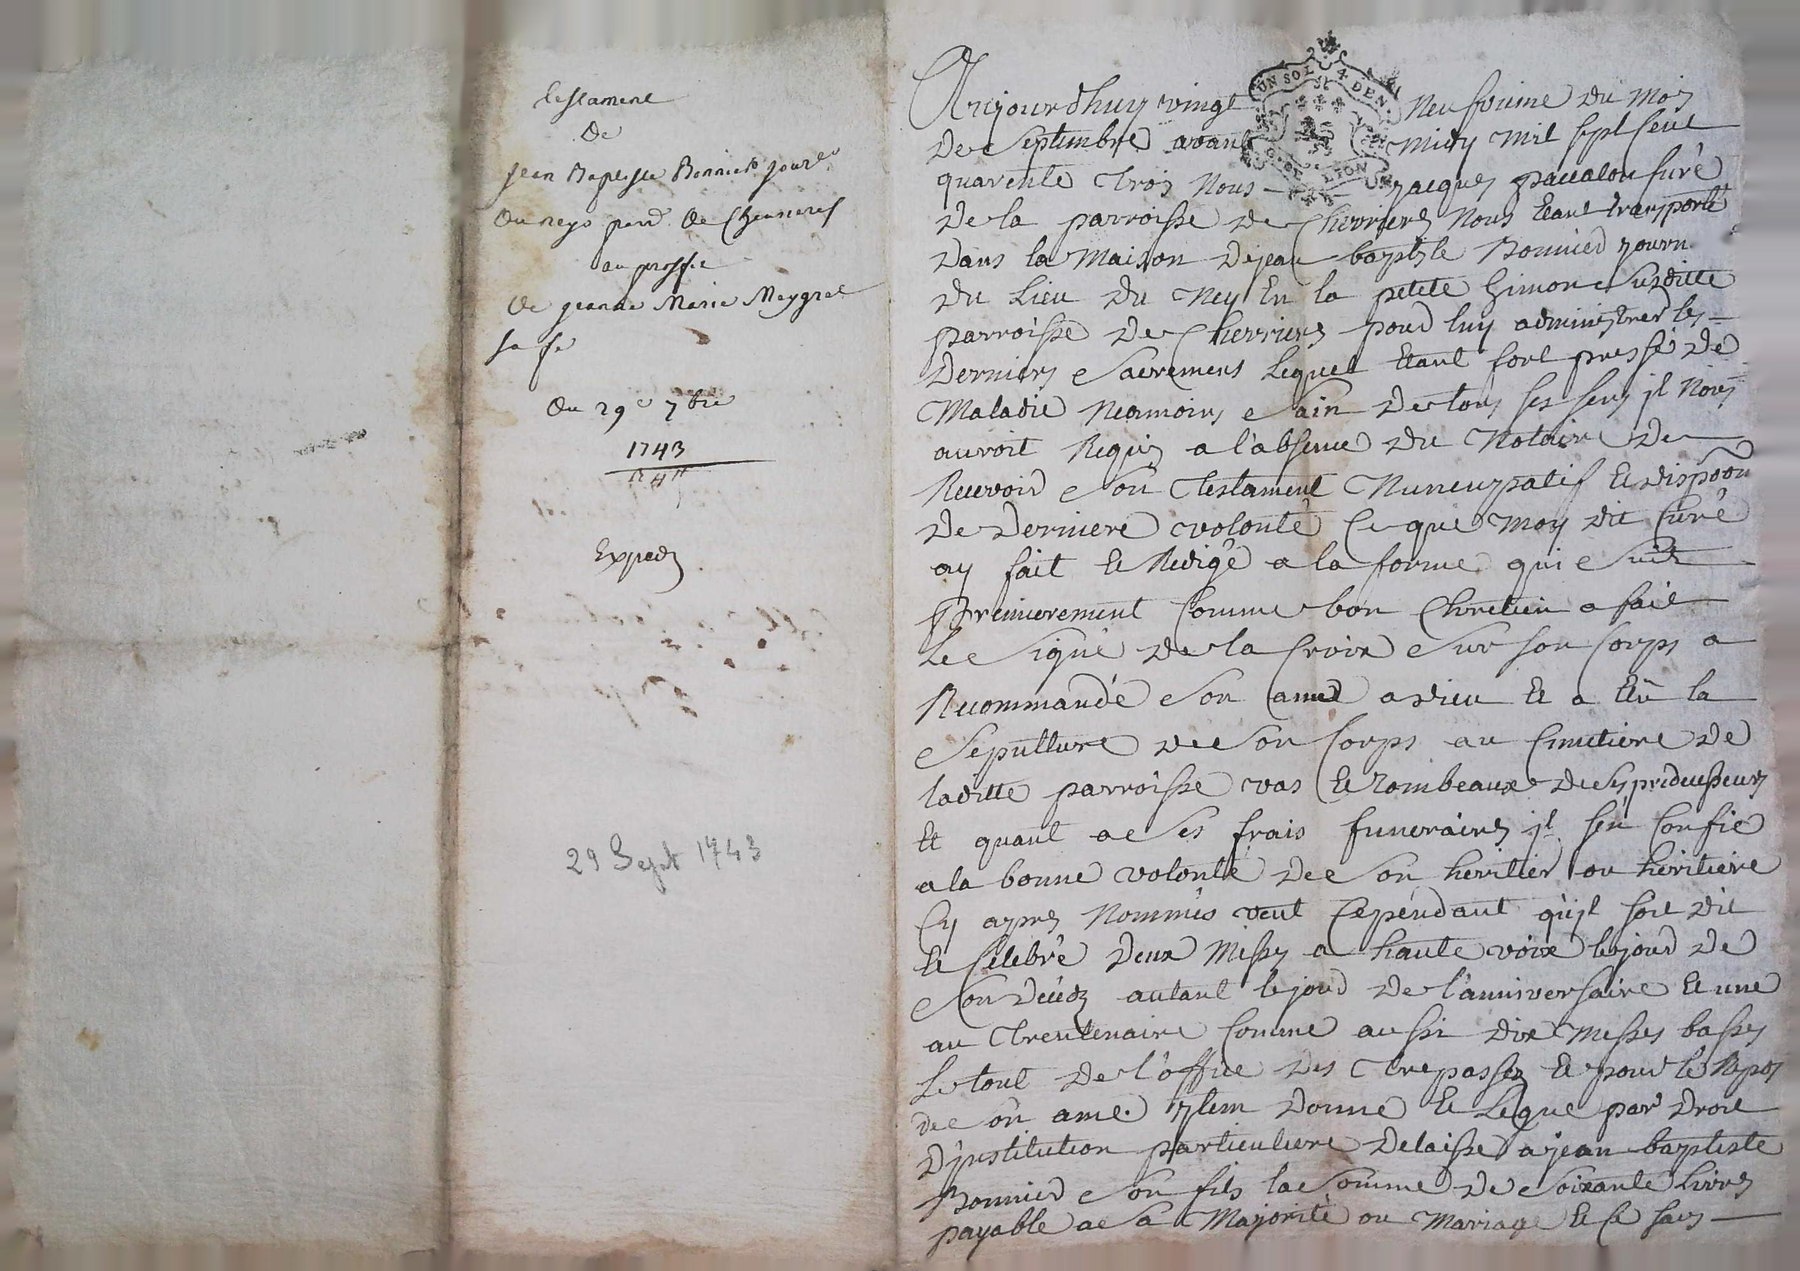 testament
de
jean Baptiste Bonnier jour.er
du neys parr. de Cheurieres
au proffit
de jeanne Marie Meygret
sa fe
du 29e 7bre
1743
Exped
29 Sept 1743
UN SOL 4 DEN
G. DE LYON
Aujourdhuy vingt neufvieme du mois
de septembre avant midy mil sept cent
quarente trois nous jacques paccalon curé
de la parroisse de Chevrieres nous etant transporté
dans la maison dejean baptiste Bonnier journ.
du lieu du Ney en la petite Gimon susditte
parroisse de Chevrieres pour luy administrer les
derniers sacremens lequel etant fort pressé de
maladie neamoins sain detous ses sens jl nous
auroit requis a l'absence du notaire de
recevoir son testament nuncupatif et dispôon
de derniere volonté ce que moy dit curé
ay fait et redigé a la forme qui suit
premierement comme bon chretien a fait
le signe de la croix sur son corps a
recommandé son ame a dieu et a élû la
sepulture de son corps au cimetiere de
laditte parroisse vas et tombeaux desespredecesseurs
et quant a ses frais funeraires jl sen confie
a la bonne volonté de son heritier ou héritiere
cy apres nommés veut cependant qu'jl soit dit
et célebré deux messes a haute voix lejour de
son décéds autant lejour de l'anniversaire et une
au trentenaire comme aussi dix messes basses
le tout de l'office des trepassés et pour le repos
de son ame. jtem donne et legue par droit
d'jnstitution particuliere delaisse a jean baptiste
Bonnier son fils la somme de soixante livres
payable a sa majorité ou mariage et ce sans